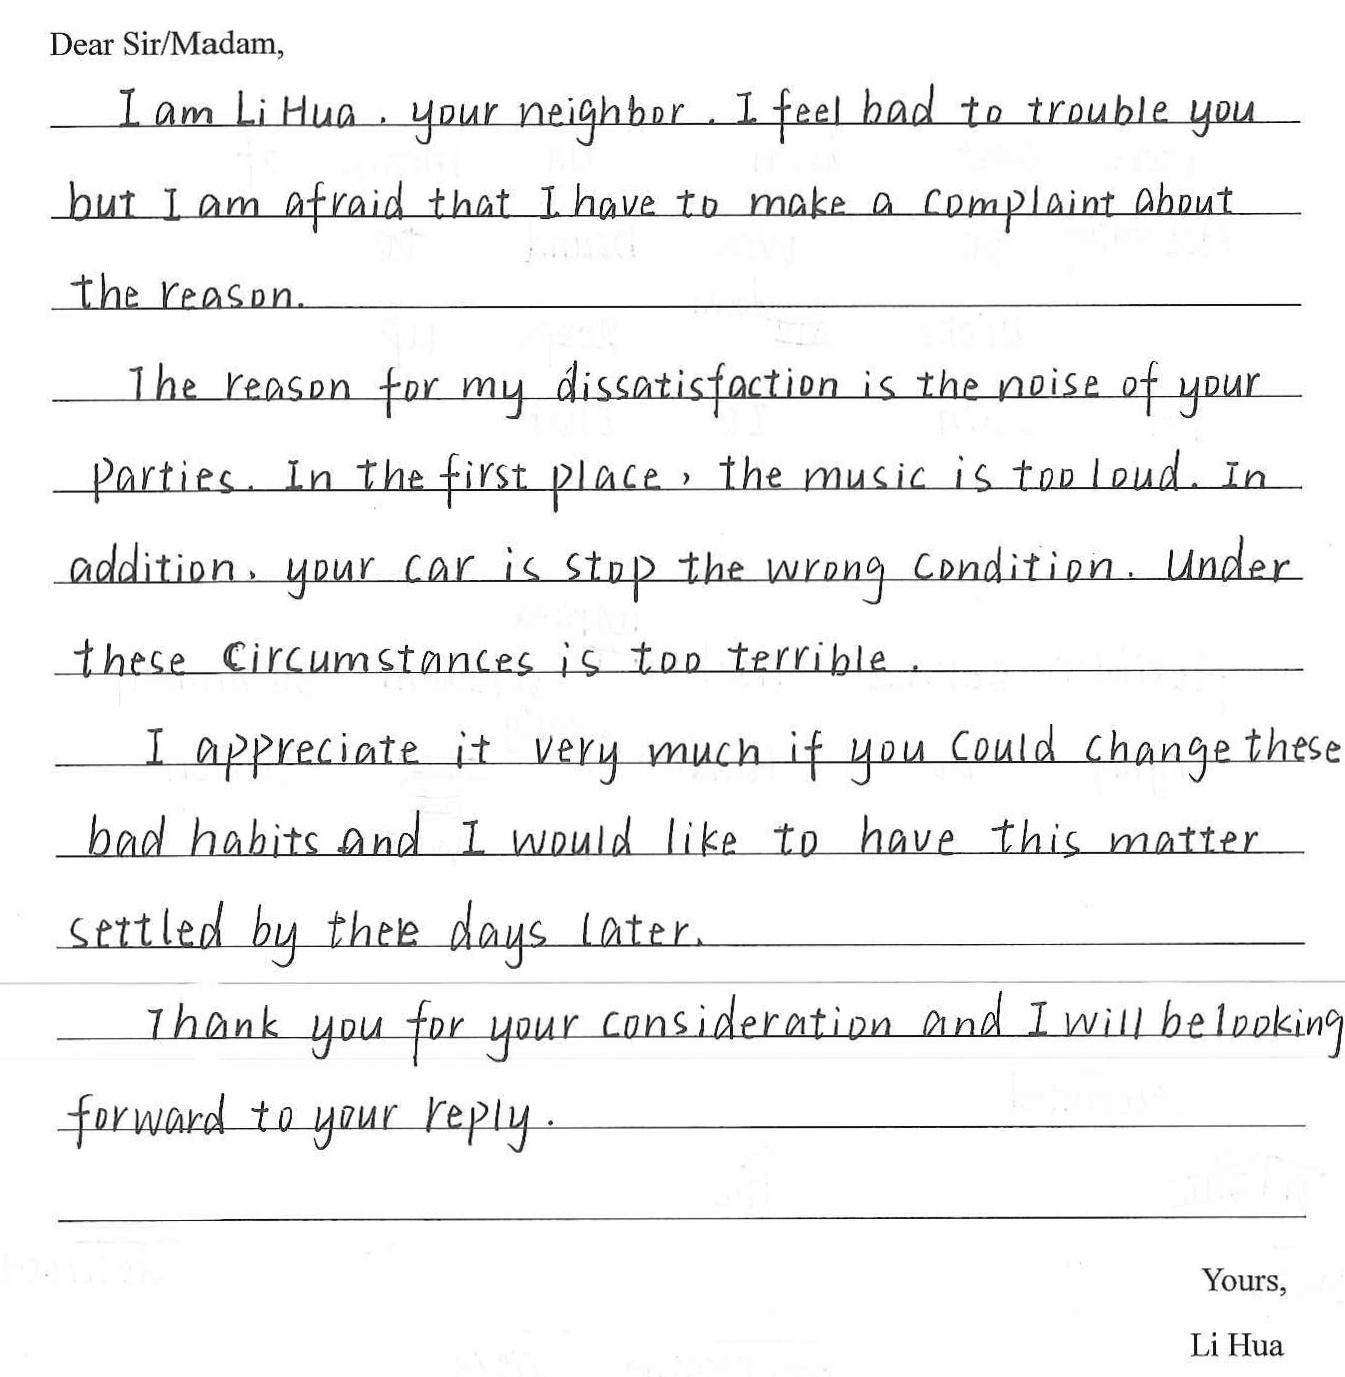 Dear Sir/Madam,
I am Li Hua. your neighbor. I feel bad to trouble you
but I am afraid that I have to make a complaint about
the reason.
The reason for my dissatisfaction is the noise of your
Parties. In the first place, the music is too loud. In
addition, your car is stop the wrong condition. Under
these Circumstances is too terrible.
I appreciate it very much if you Could change these
bad habits and I would like to have this matter
settled by thee days later.
Thank you for your consideration and I will be looking
forward to your reply.
Yours,
Li Hua